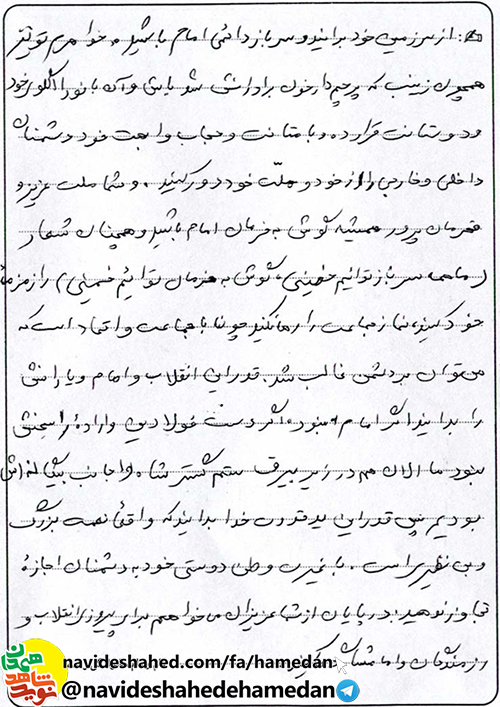 از سرزمین خود برانید و سرباز دائمی امام باشید. خواهرم تو نیز
همچون زینب که پرچمدار خون برادرانش شد باش و آن بانو را الگوی خود
و دوستانت قرار ده و با متانت و حجاب و ابهت خود دشمنان
داخلی و خارجی را از خود و ملّت خود دور کنید. و شما ملت عزیز و
قهرمان پرور همیشه گوش به فرمان امام باشید و همچنان شعار
(ما همه سرباز توئیم خمینی، گوش به فرمان توئیم خمینی) را زمزمهٔ
خود کنید، نماز جماعت را رها نکنید چون با جماعت و اتحاد است که
می‌توان بر دشمن غالب شد. قدر این انقلاب و امام و یارانش
را بدانید اگر امام نبود، اگر دست فولادین و ارادهٔ راسخش
نبود ما الان هم در زیر بیرق ستم گستر شاه و اجانب بیگانه‌اش
بودیم پس قدر این ید قدرت خدا بدانید که واقعاً نعمت بزرگ
و بی نظیر است. با غیرت وطن دوستی خود به دشمنان اجازهٔ
تجاوز ندهید. در پایان از شما عزیزان می‌خواهم برای پیروزی انقلاب و
رزمندگان و امامشان
navideshahed.com/fa/hamedan
@navideshahedehamedan
نوید شاهد همدان